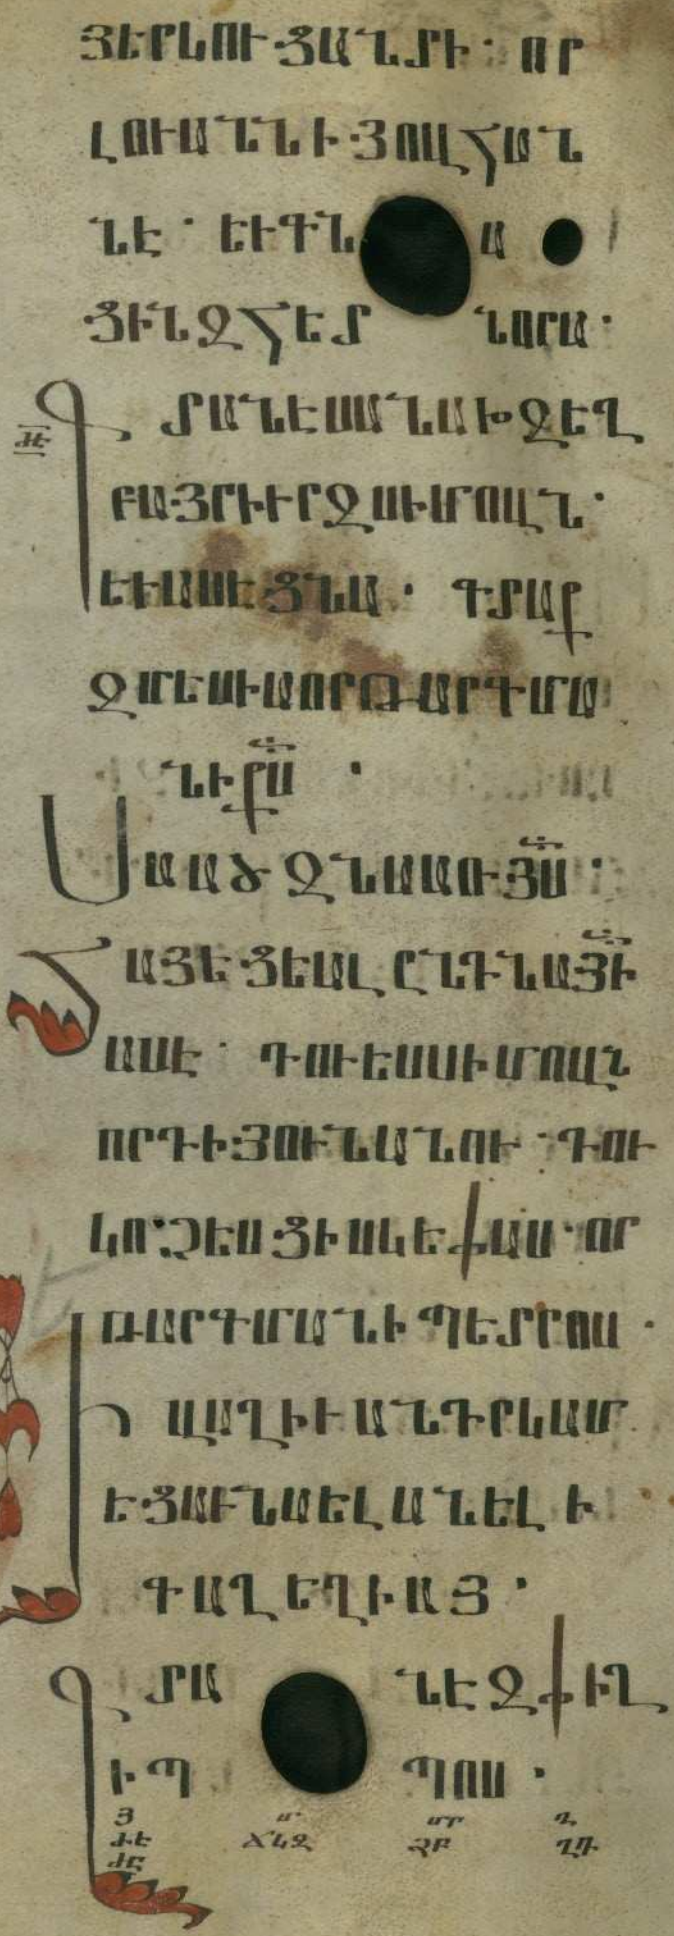 ՅԵՐԿՈՒՑԱՆՏԻ· ՈՐ
ԼՈՒԱՆՆԻՅՈՎՀԱՆ
ՆԷ· ԵՒԳՆ Ա
ՑԻՆԶՀԵՏ ՆՈՐԱ·
ԺԷ
ԳՏԱՆԷՍԱՆԱԽԶԵՂ
ԲԱՅՐԻՒՐԶՍԻՄՈՎՆ·
ԵՒԱՍԷՑՆԱ· ԳՏԱՔ
ԶՄԵՍԻԱՈՐԹԱՐԳՄԱ
ՆԻՔՍ·
ՍԱԱԾԶՆԱԱՌՅՍ·
ՀԱՅԵՑԵԱԼԸՆԴՆԱՅԻ
ԱՍԷ· ԴՈՒԵՍՍԻՄՈՎՆ
ՈՐԴԻՅՈՒՆԱՆՈՒ·ԴՈՒ
ԿՈՉԵՍՑԻՍԿԵՓԱՍ·ՈՐ
ԹԱՐԳՄԱՆԻՊԵՏՐՈՍ·
ԻՎԱՂԻՒԱՆԴՐԿԱՄ
ԵՑԱՒՆԱԵԼԱՆԵԼԻ
ԳԱՂԵՂԻԱՅ·
ԳՏԱ ՆԷԶՓԻՂ
ԻՊ ՊՈՍ·
Յ Մ ՄՐ Ղ
ԺԵ ՃԿԶ ՁԲ ՂԴ
ԺԸ